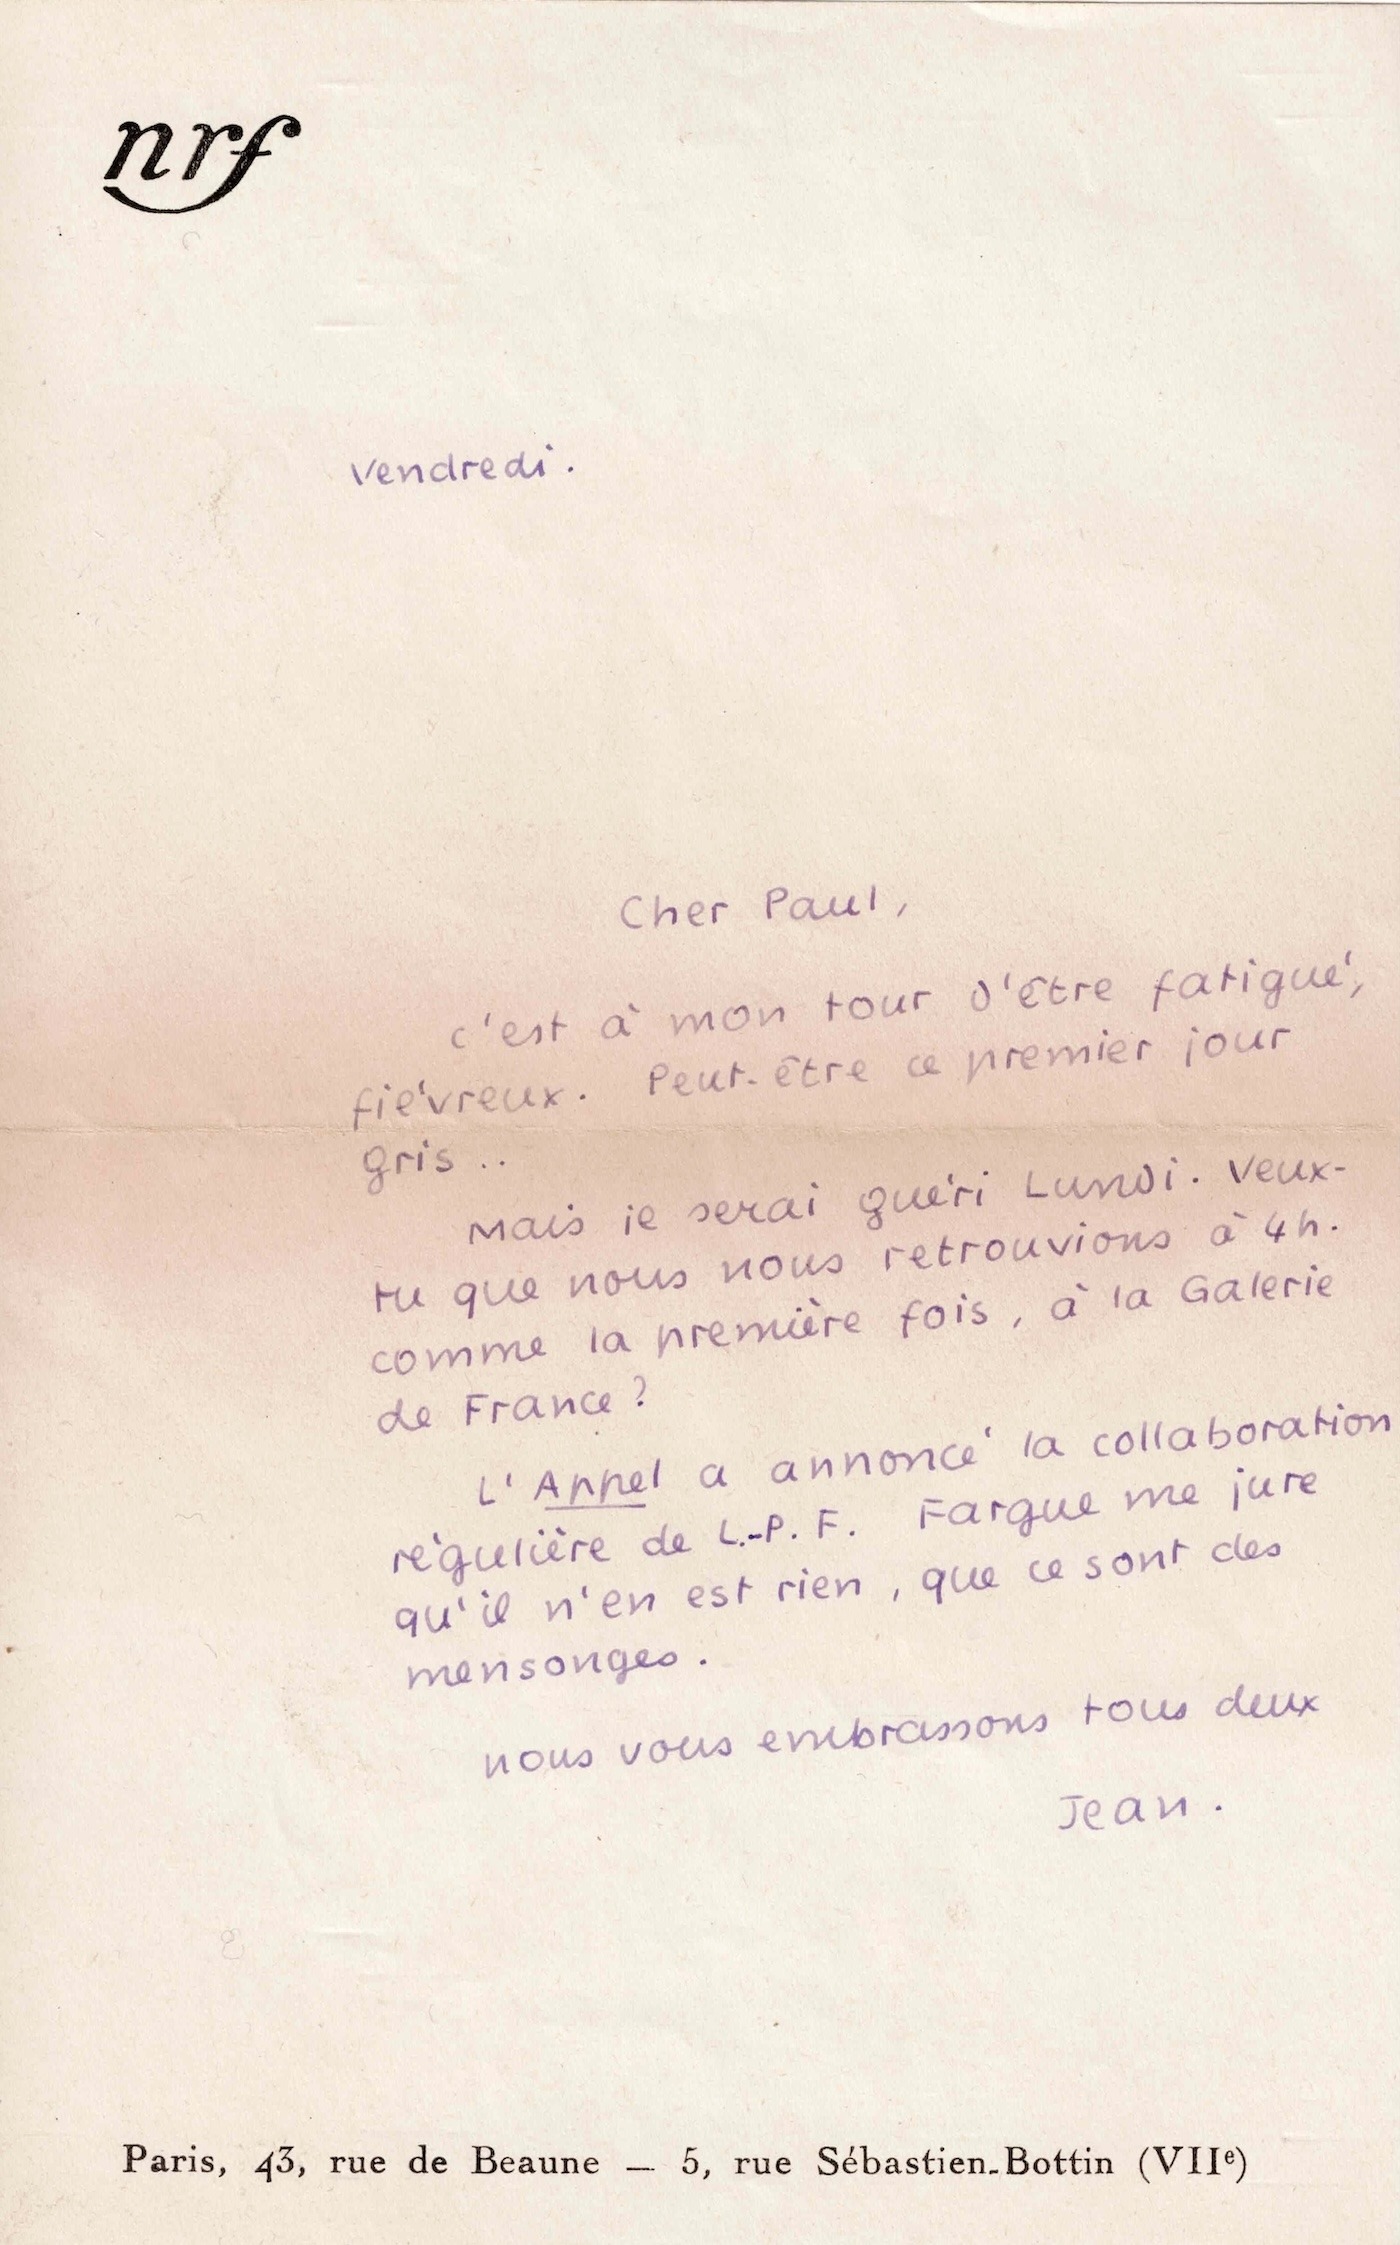 nrf
Vendredi.
Cher Paul,
c'est à mon tour d'être fatigué,
fiévreux. Peut-être ce premier jour
gris..
Mais je serai guéri Lundi. Veux-
tu que nous nous retrouvions à 4h.
comme la première fois, à la Galerie
de France ?
L'Appel a annoncé la collaboration
régulière de L.-P. F. Fargue me jure
qu'il n'en est rien, que ce sont des
mensonges.
nous vous embrassons tous deux
Jean.
Paris, 43, rue de Beaune — 5, rue Sébastien-Bottin (VIIᵉ)